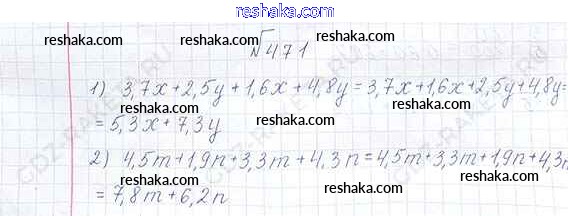 reshaka.com
№471
reshaka.com reshaka.com
reshaka.com reshaka.com reshaka.com
1) 3,7x+2,5y+1,6x+4,8y=3,7x+1,6x+2,5y+4,8y=
reshaka.com reshaka.com
=5,3x+7,3y
reshaka.com reshaka.com reshaka.com
2) 4,5m+1,9n+3,3m+4,3n=4,5m+3,3m+1,9n+4,3n
reshaka.com reshaka.com
=7,8m+6,2n